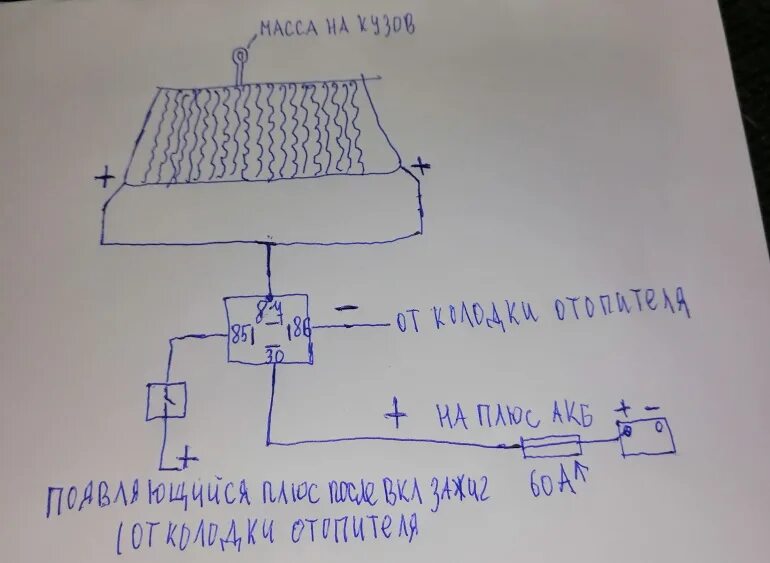 МАССА НА КУЗОВ
+ +
87
85 86
30
− ОТ КОЛОДКИ ОТОПИТЕЛЯ
+ НА ПЛЮС АКБ + −
60А
+
ПОЯВЛЯЮЩИЙСЯ ПЛЮС ПОСЛЕ ВКЛ ЗАЖИГ
(ОТ КОЛОДКИ ОТОПИТЕЛЯ